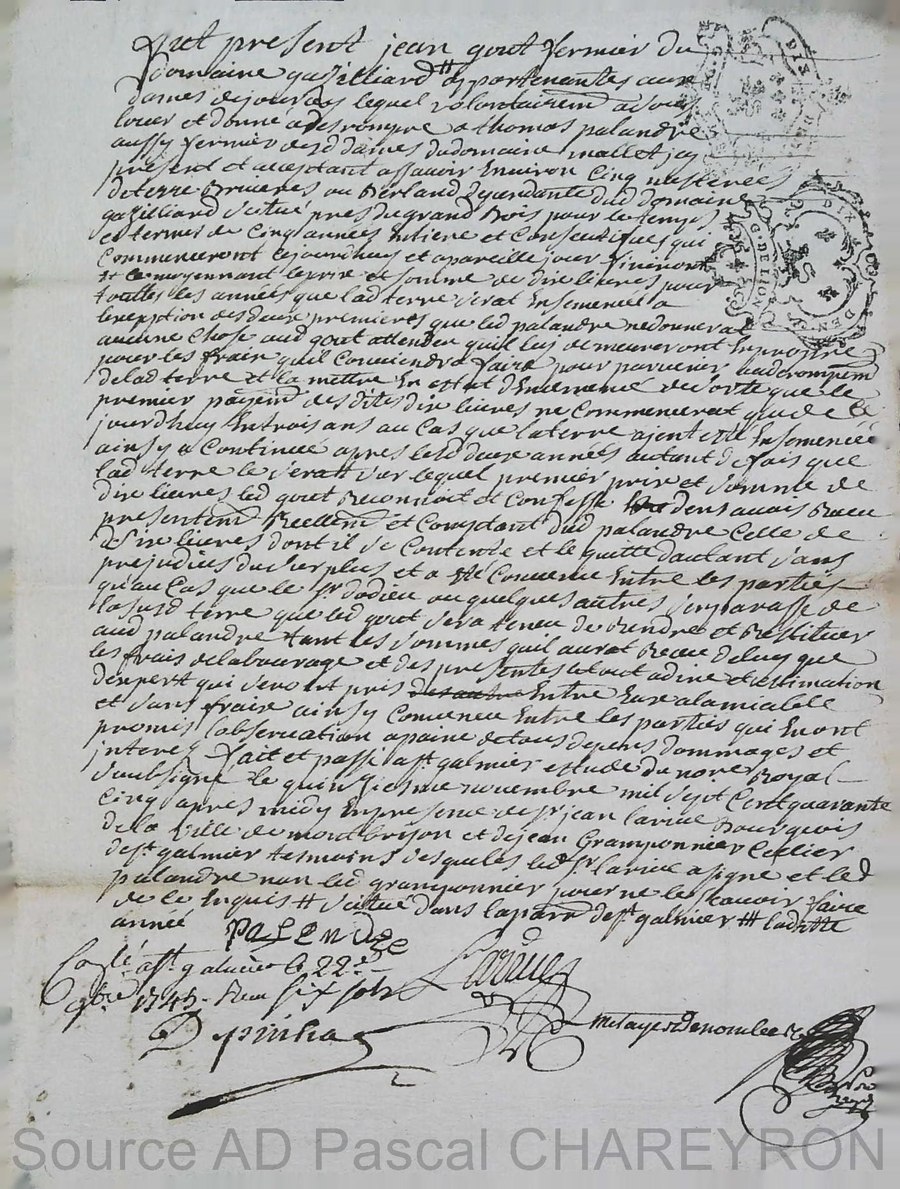 fut present jean gout fermier du
domaine gazilliard # appartenantes aux
dames de jourcey lequel volontairem̃ a
loué et donné a desrompre a thomas palandre
aussy fermier desd dames du domaine mallet jcy
present et acceptant assavoir Environ Cinq mesterées
de terre Bruieres
gazilliard situé pres du grand Bois pour le temps
et terme de Cinq années Entiere et Consecutifves qui
Commenceront cejourdhuy et a pareille jour finiront
et moyennant le prix et somme de dix livres pour
touttes les années que lad terre serat Ensemencé a
lexeption des deux premieres que led palandre ne donnerat
aucune Chose aud gout attendu quil luy demeureront
pour les frais quil Conviendra faire pour parvenir
de lad terre et la mettre En estat dEnsemencé de sorte que le
premier payem̃ desdites dix livres ne Commencerat que de ce
jourdhuy En trois ans au Cas que la terre aient été Ensemencée
ainsy a Continué apres lesd deux années autant de fois que
lad terre le serat sur lequel premier prix et somme de
dix livres led gout Reconnoit et Confesse avoir Receu
presentem̃ Réellem̃ et Comptant dud palandre Celle de
livres dont il se Contente et le quitte dautant sans
prejudices du surplus et a été Convenu Entre les parties
quau Cas que le sr dodieu ou quelques autres semparasse de
la susd terre que led gout sera tenu de Rendre et Restituer
aud palandre tant les sommes quil aurat Receu deluy que
les frais de labourage et des presentes le tout a dire et estimation
dexpert qui seront pris Entre Eux a lamiable
et sans fraix ainsy Convenu Entre les parties qui Enont
promis lobservation a paine de tous depens dommages et
interetz fait et passé a st galmier estude du nore Royal
soubsigné le quinziesme novembre mil sept Cent quarante
Cinq apres midy En presence de sr jean lariue Bourgeois
de la ville de montbrison et de jean Gramponnier Cellier
de st galmier tesmoins desquels led sr lariue a signé et led
palandre non led gramponnier pour ne le scavoir faire
de ce Enquis # scitué dans la parr̃ de st galmier ### ladte
année PALENDRE
Conlé a st galmier le 22e
9bre 1745 Reçu six sols
Lariue
Depinhac